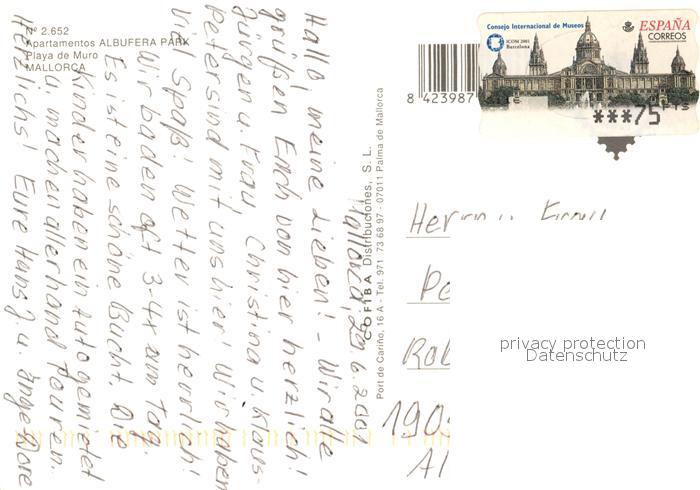 Nº 2.652
Apartamentos ALBUFERA PARK
Playa de Muro
MALLORCA
Mallorca, 20.6.2001
Hallo, meine Lieben! - Wir alle
grüßen Euch von hier herzlich!
Jürgen u. Frau, Christina u. Klaus-
Peter sind mit uns hier! Wir haben
viel Spaß! Wetter ist herrlich!
Wir baden oft 3-4x am Tag.
Es ist eine schöne Bucht. Die
Kinder haben ein Auto gemietet
u. machen allerhand Touren.
Herzlichst Eure Hans J. u. Inge-Dore
COFIBA Distribuciones, S. L.
Port de Cariño, 16 A - Tel. 971 73 68 97 - 07011 Palma de Mallorca
8 423987
Consejo Internacional de Museos
ICOM 2001
Barcelona
ESPAÑA
CORREOS
***75 PTS
Herrn u.
Po
Rob
190
Al
privacy protection
Datenschutz